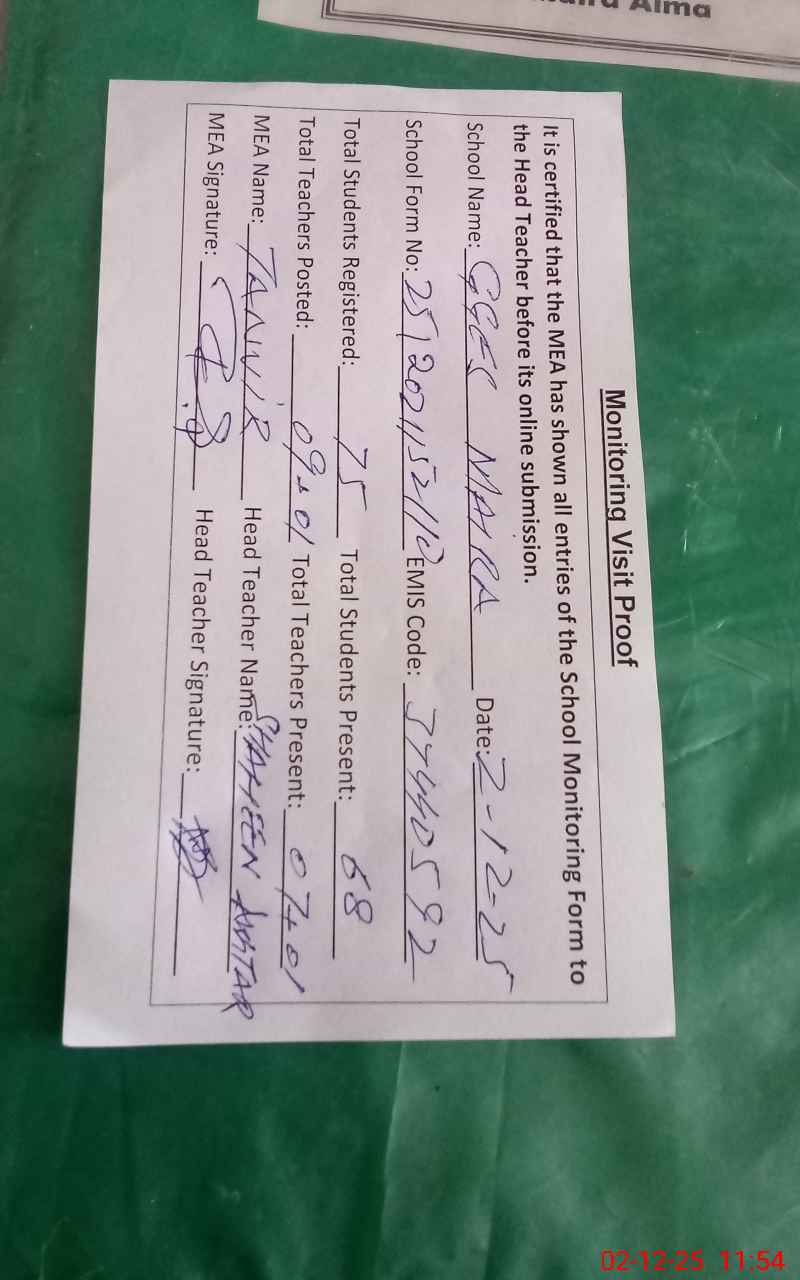 Alma
Monitoring Visit Proof
It is certified that the MEA has shown all entries of the School Monitoring Form to
the Head Teacher before its online submission.
School Name: GGES MAIRA Date: 2-12-25
School Form No: 2512021152110 EMIS Code: 37440592
Total Students Registered: 75 Total Students Present: 68
Total Teachers Posted: 09+01 Total Teachers Present: 07+01
MEA Name: TANVIR Head Teacher Name: SHAHEEN AKHTAR
MEA Signature: Head Teacher Signature:
02-12-25 11:54